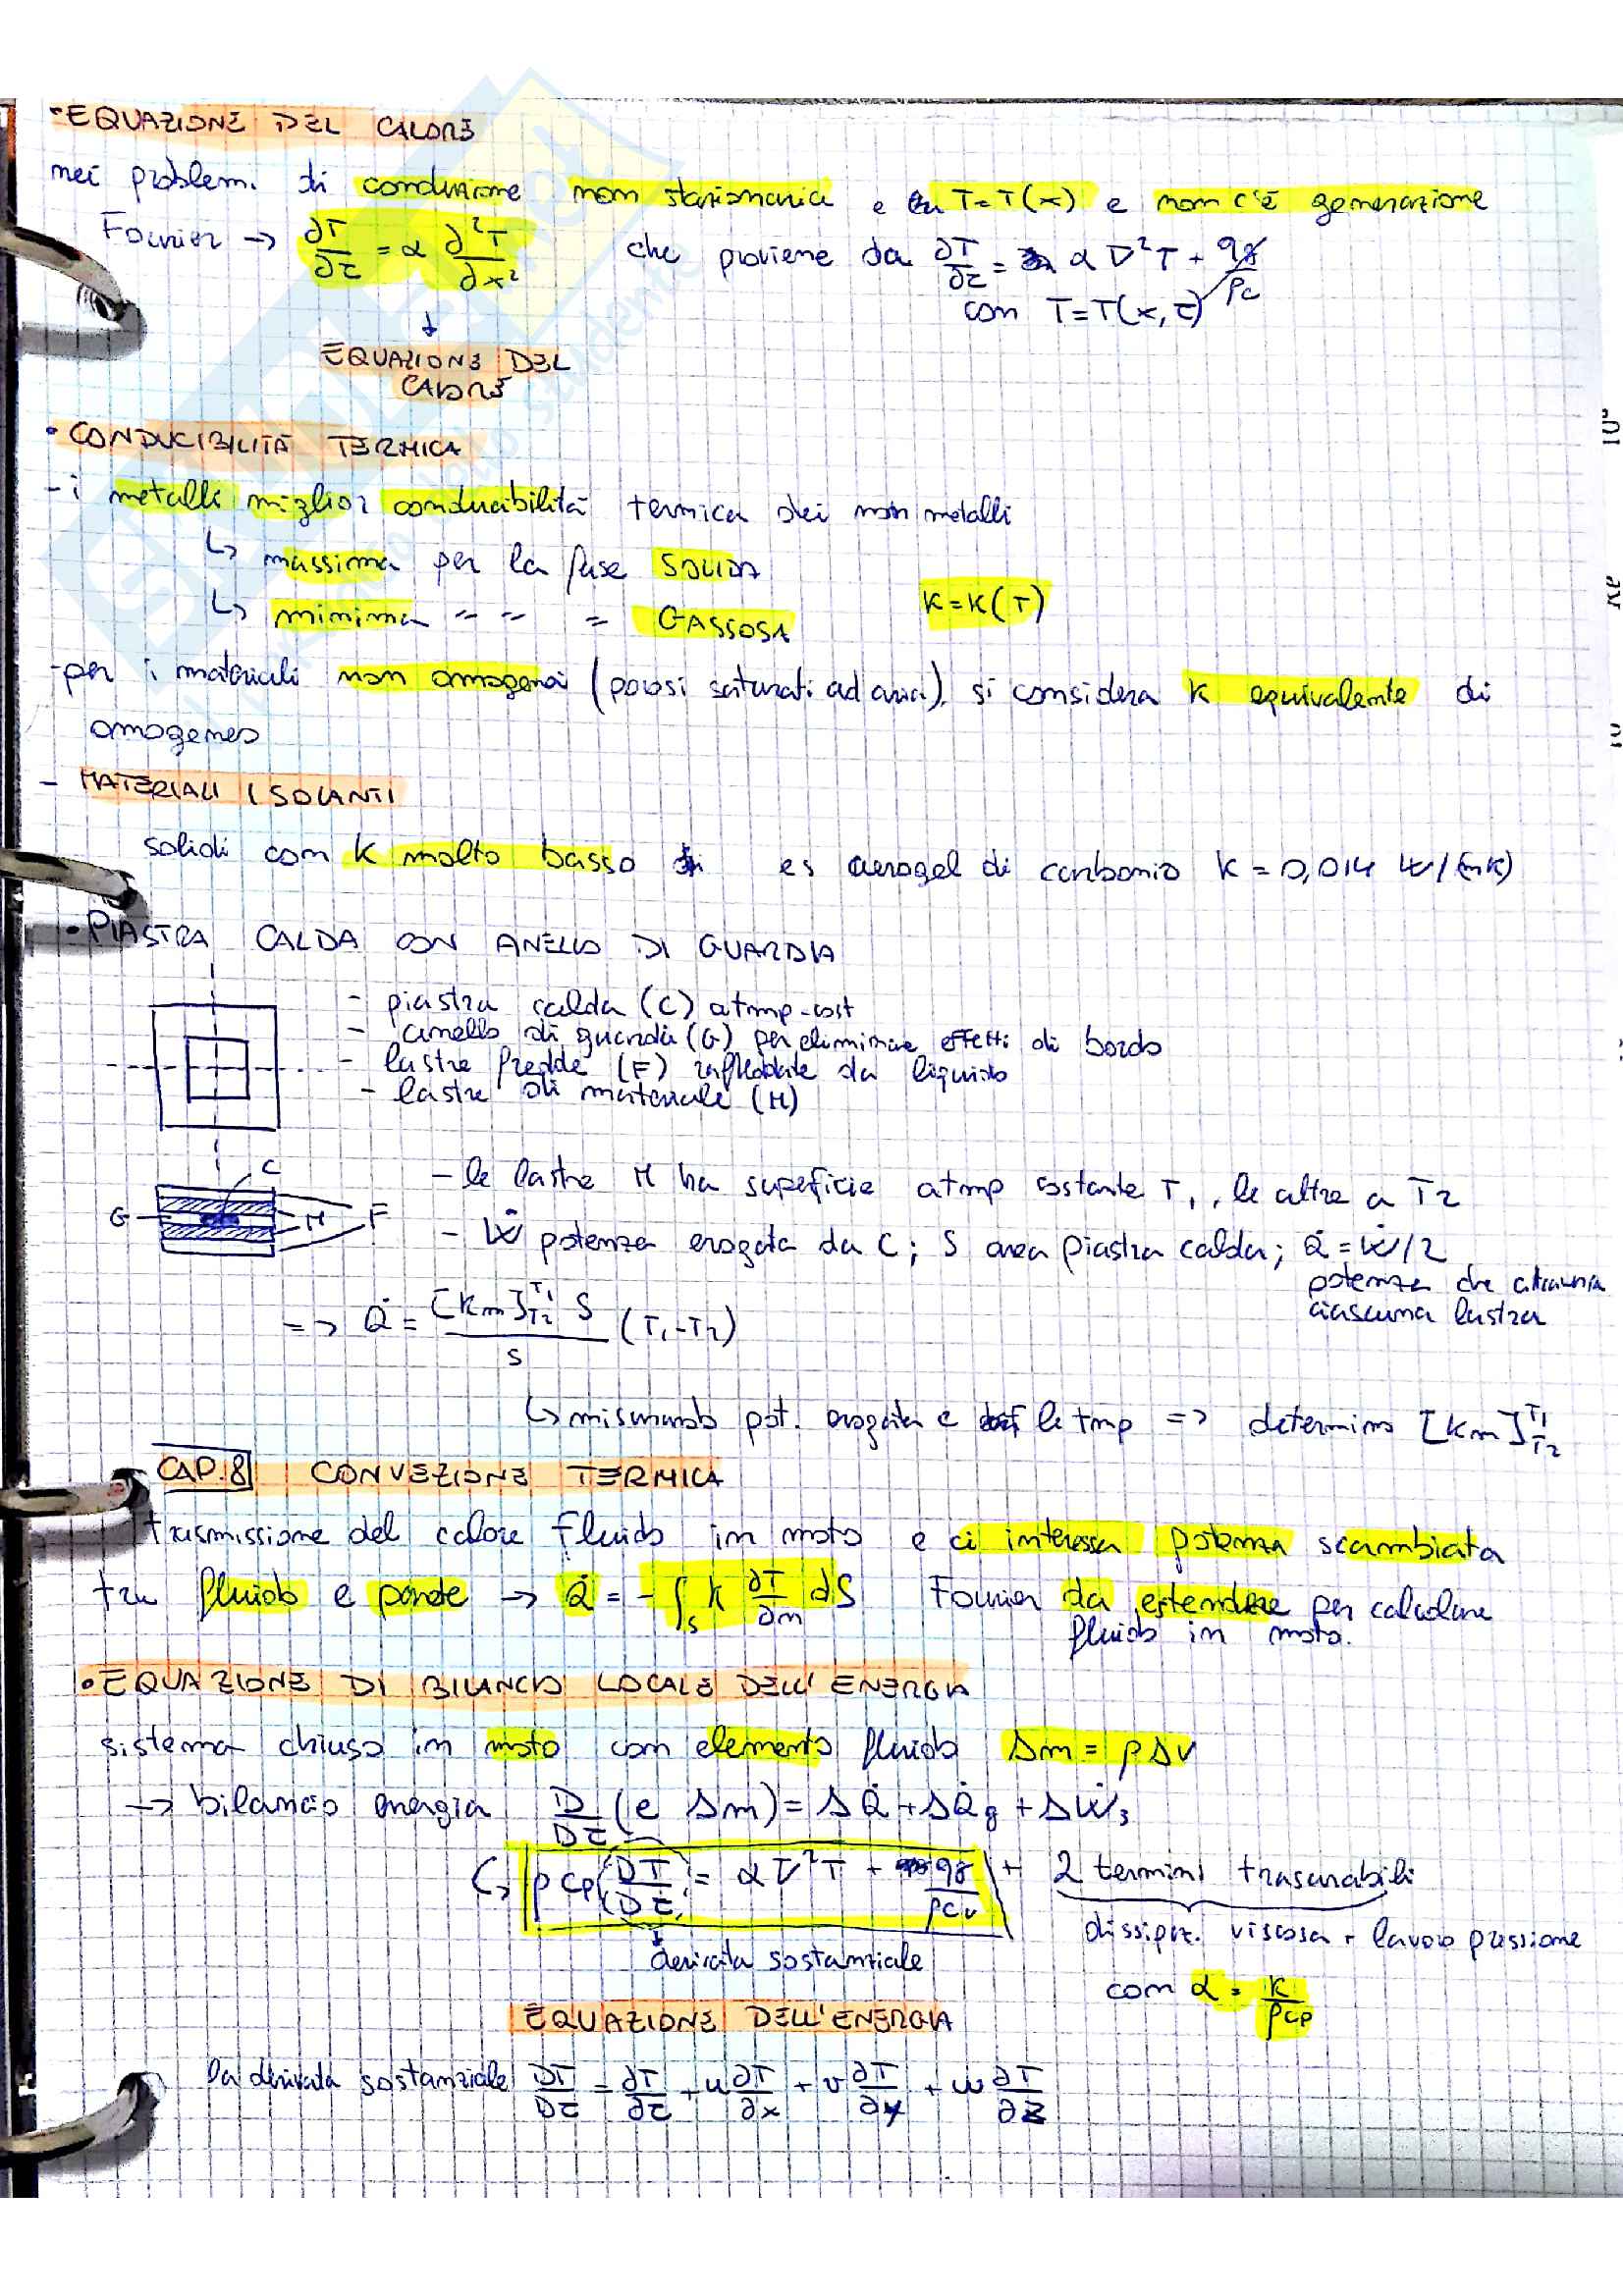 • EQUAZIONE DEL CALORE
nei problemi di conduzione non stazionaria e T=T(x) e non c'è generazione
Fourier → ∂T/∂τ = α ∂²T/∂x² che proviene da ∂T/∂τ = α ∇²T + qg/ρc
con T=T(x,τ)
↓
EQUAZIONE DEL
CALORE
• CONDUCIBILITÀ TERMICA
- i metalli miglior conducibilità termica dei non metalli
↳ massima per la fase SOLIDA
↳ minima " " " GASSOSA K=K(T)
- per i materiali non omogenei (porosi saturati ad aria) si considera K equivalente di
omogeneo
- MATERIALI ISOLANTI
solidi con K molto basso es aerogel di carbonio K = 0,014 W/(mK)
• PIASTRA CALDA CON ANELLO DI GUARDIA
- piastra calda (C) a tmp cost
- anello di guardia (G) per eliminare effetti di bordo
- lastre fredde (F) raffreddate da liquido
- lastre di materiale (M)
C
G M F
- le lastre M ha superficie a tmp costante T1, le altre a T2
- Ẇ potenza erogata da C; S area piastra calda; Q̇ = Ẇ/2
potenza che attraversa
ciascuna lastra
=> Q̇ = [Km]T1T2 S / s (T1-T2)
↳ misurando pot. erogata e le tmp => determino [Km]T1T2
CAP. 8 CONVEZIONE TERMICA
trasmissione del calore fluido in moto e ci interessa potenza scambiata
tra fluido e parete → Q̇ = - ∫s K ∂T/∂n dS Fourier da estendere per calcolare
fluido in moto.
• EQUAZIONE DI BILANCIO LOCALE DELL'ENERGIA
sistema chiuso in moto con elemento fluido Δm = ρΔV
→ bilancio energia D/Dτ (e Δm) = ΔQ̇ + ΔQ̇g + ΔẆs
↳ ρcp(DT/Dτ) = α∇²T + qg/ρcv + 2 termini trascurabili
dissipaz. viscosa + lavoro pressione
derivata sostanziale
con α = K/ρcp
EQUAZIONE DELL'ENERGIA
la derivata sostanziale DT/Dτ = ∂T/∂τ + u ∂T/∂x + v ∂T/∂y + w ∂T/∂z